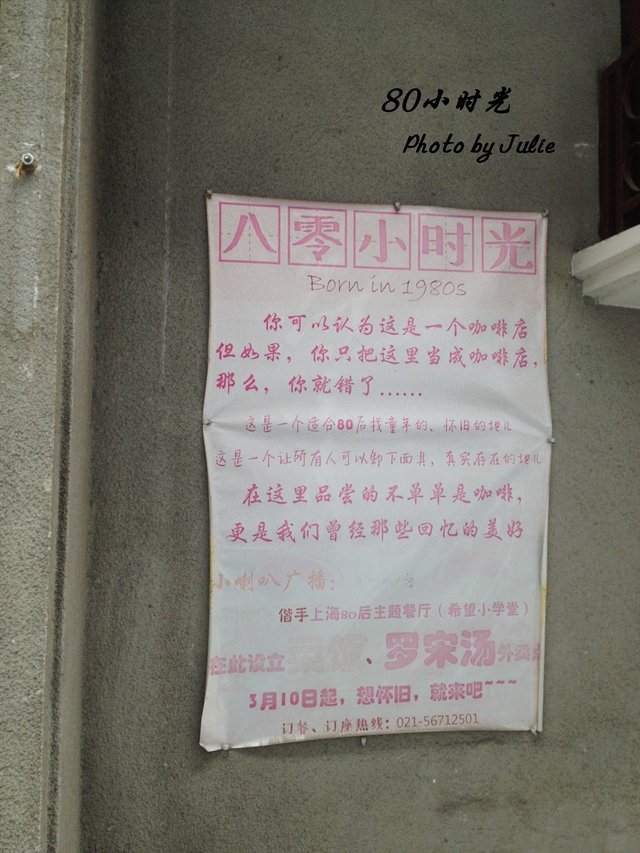 80小时光
Photo by Julie
八零小时光
Born in 1980s
你可以认为这是一个咖啡店
但如果，你只把这里当成咖啡店，
那么，你就错了......
这是一个适合80后找童年的、怀旧的地儿
这是一个让所有人可以卸下面具，真实存在的地儿
在这里品尝的不单单是咖啡，
更是我们曾经那些回忆的美好
小喇叭广播：
偕手上海80后主题餐厅（希望小学堂）
在此设立菜饭、罗宋汤外卖
3月10日起，想怀旧，就来吧~~~
订餐、订座热线：021-56712501